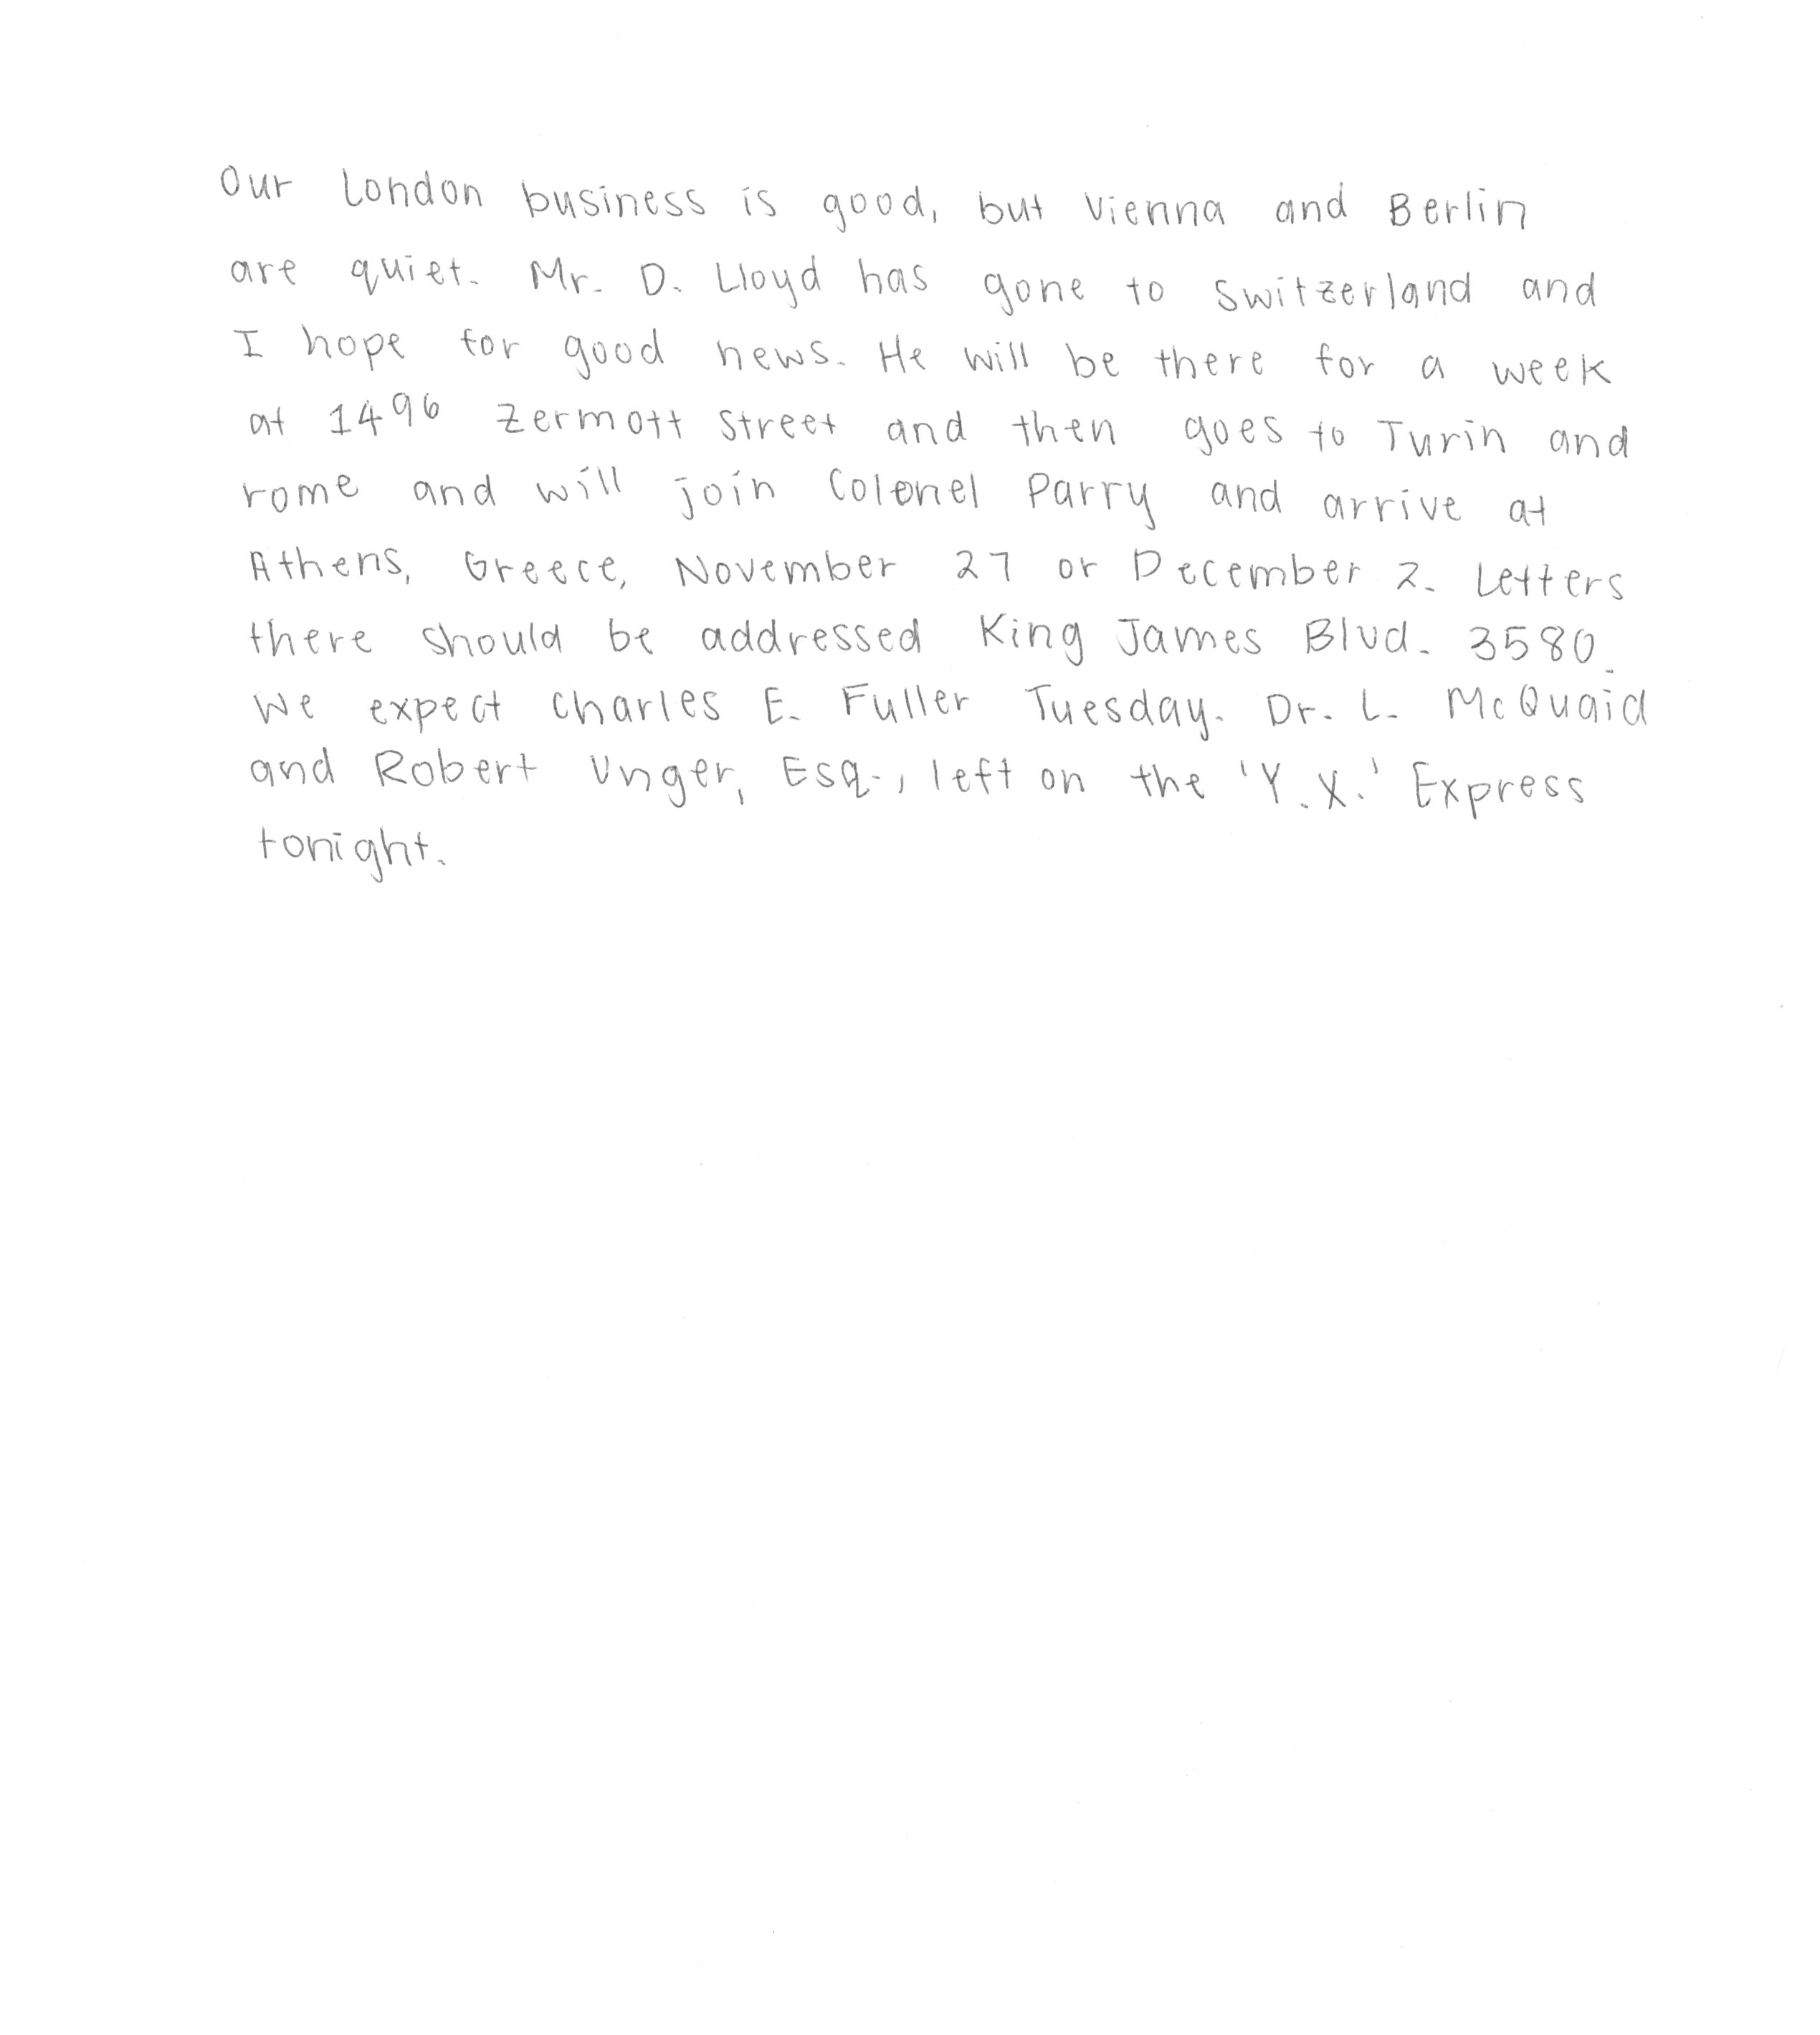 Our London business is good, but Vienna and Berlin
are quiet. Mr. D. Lloyd has gone to Switzerland and
I hope for good news. He will be there for a week
at 1496 Zermott Street and then goes to Turin and
rome and will join Colonel Parry and arrive at
Athens, Greece, November 27 or December 2. Letters
there should be addressed King James Blvd. 3580.
We expect Charles E. Fuller Tuesday. Dr. L. McQuaid
and Robert Unger, Esq., left on the 'Y.X.' Express
tonight.